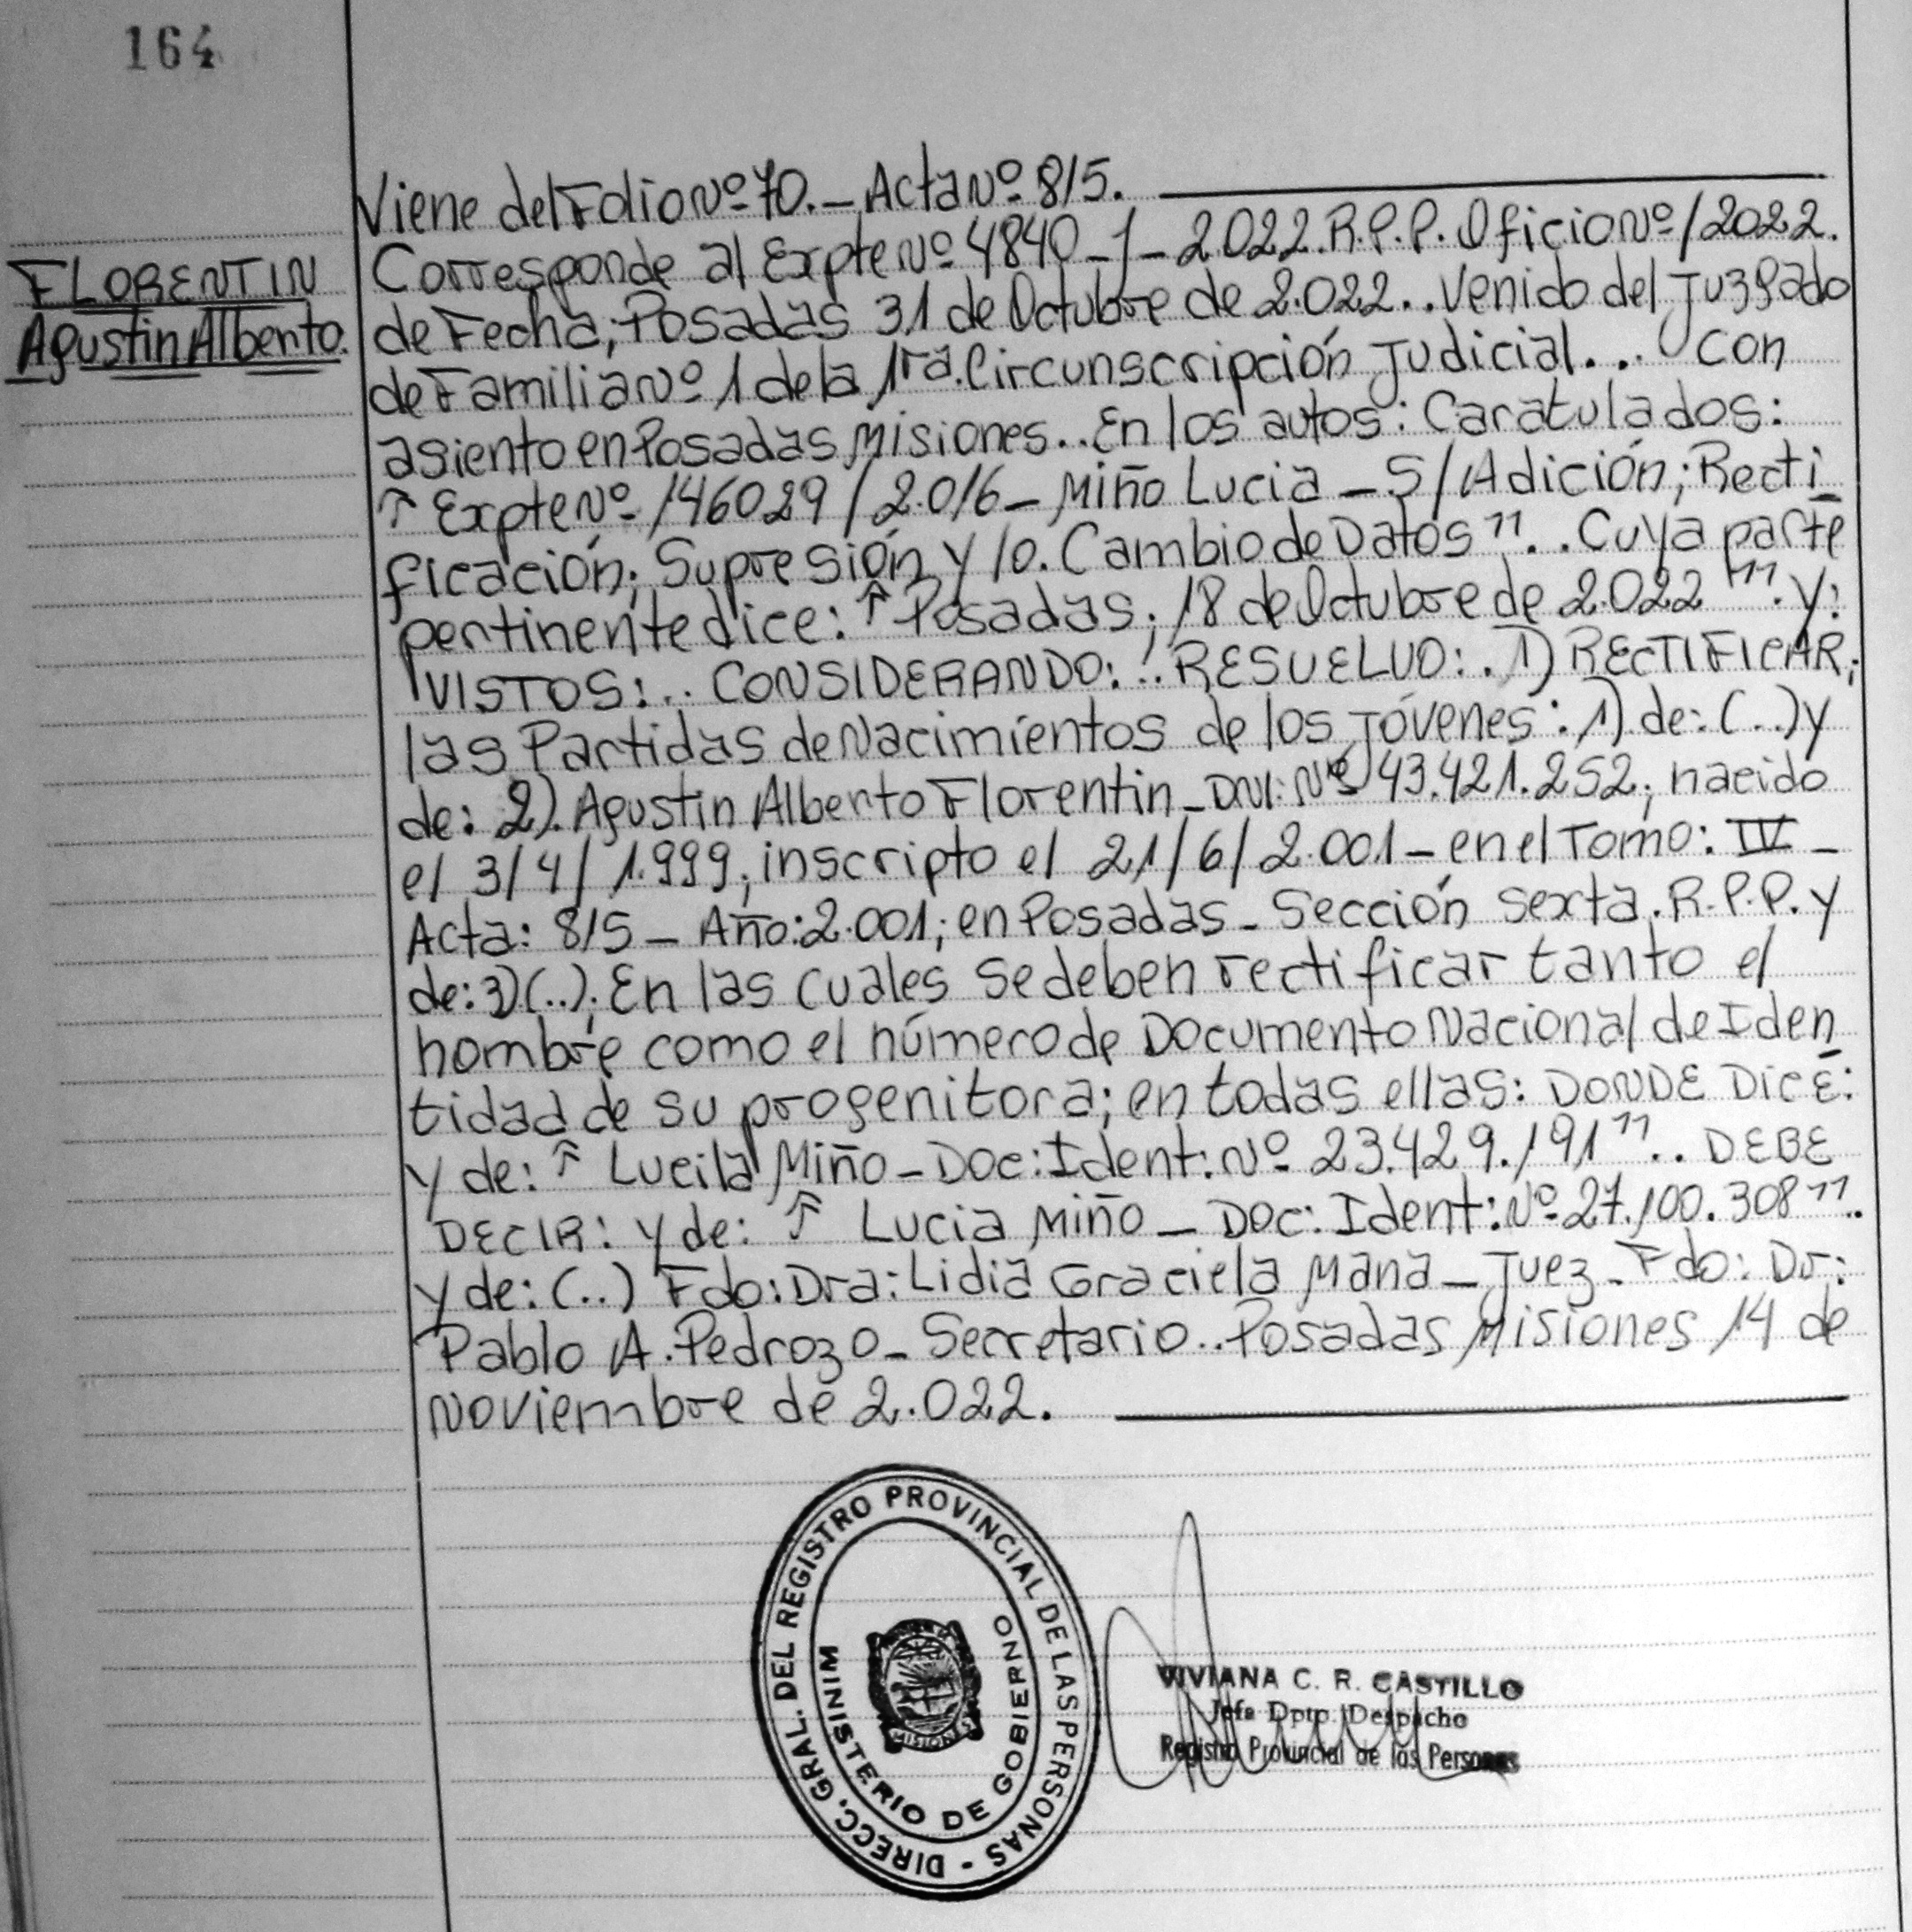 164
FLORENTIN
Agustin Alberto.
Viene del Folio Nº 70._ Acta Nº 815.
Corresponde al Expte Nº 4840_J_2022. R.P.P. Oficio Nº /2022.
de Fecha; Posadas 31 de Octubre de 2.022.. Venido del Juzgado
de Familia Nº 1 de la 1ra. Circunscripción Judicial... con
asiento en Posadas Misiones.. En los autos: Caratulados:
" Expte Nº 146029/2.016_ Miño Lucia _ S/Adición; Recti_
ficación; Supresión y/o. Cambio de Datos"... Cuya parte
pertinente dice: "Posadas; 18 de Octubre de 2.022". Y:
VISTOS:.. CONSIDERANDO:.. RESUELVO:. 1) RECTIFICAR;
las Partidas de Nacimientos de los Jóvenes: 1) de: (..) y
de: 2). Agustin Alberto Florentin_ DNI: Nº 43.421.252; nacido
el 3/4/1.999; inscripto el 21/6/2.001_ en el Tomo: IV _
Acta: 815 _ Año: 2.001; en Posadas _ Sección Sexta. R.P.P. y
de: 3) (..). En las cuales se deben rectificar tanto el
nombre como el número de Documento Nacional de Iden_
tidad de su progenitora; en todas ellas: DONDE DICE:
y de: " Lucila Miño _ Doc: Ident: Nº 23.429.191".. DEBE
DECIR: y de: " Lucia Miño _ Doc: Ident: Nº 27.100.308"..
y de: (..) Fdo: Dra: Lidia Graciela Mana _ Juez_ Fdo: Dr:
Pablo A. Pedrozo_ Secretario.. Posadas Misiones 14 de
Noviembre de 2.022.
DIRECC. GRAL. DEL REGISTRO PROVINCIAL DE LAS PERSONAS -
MINISTERIO DE GOBIERNO
MISIONES
VIVIANA C. R. CASTILLO
Jefa Dpto. Despacho
Registro Provincial de las Personas